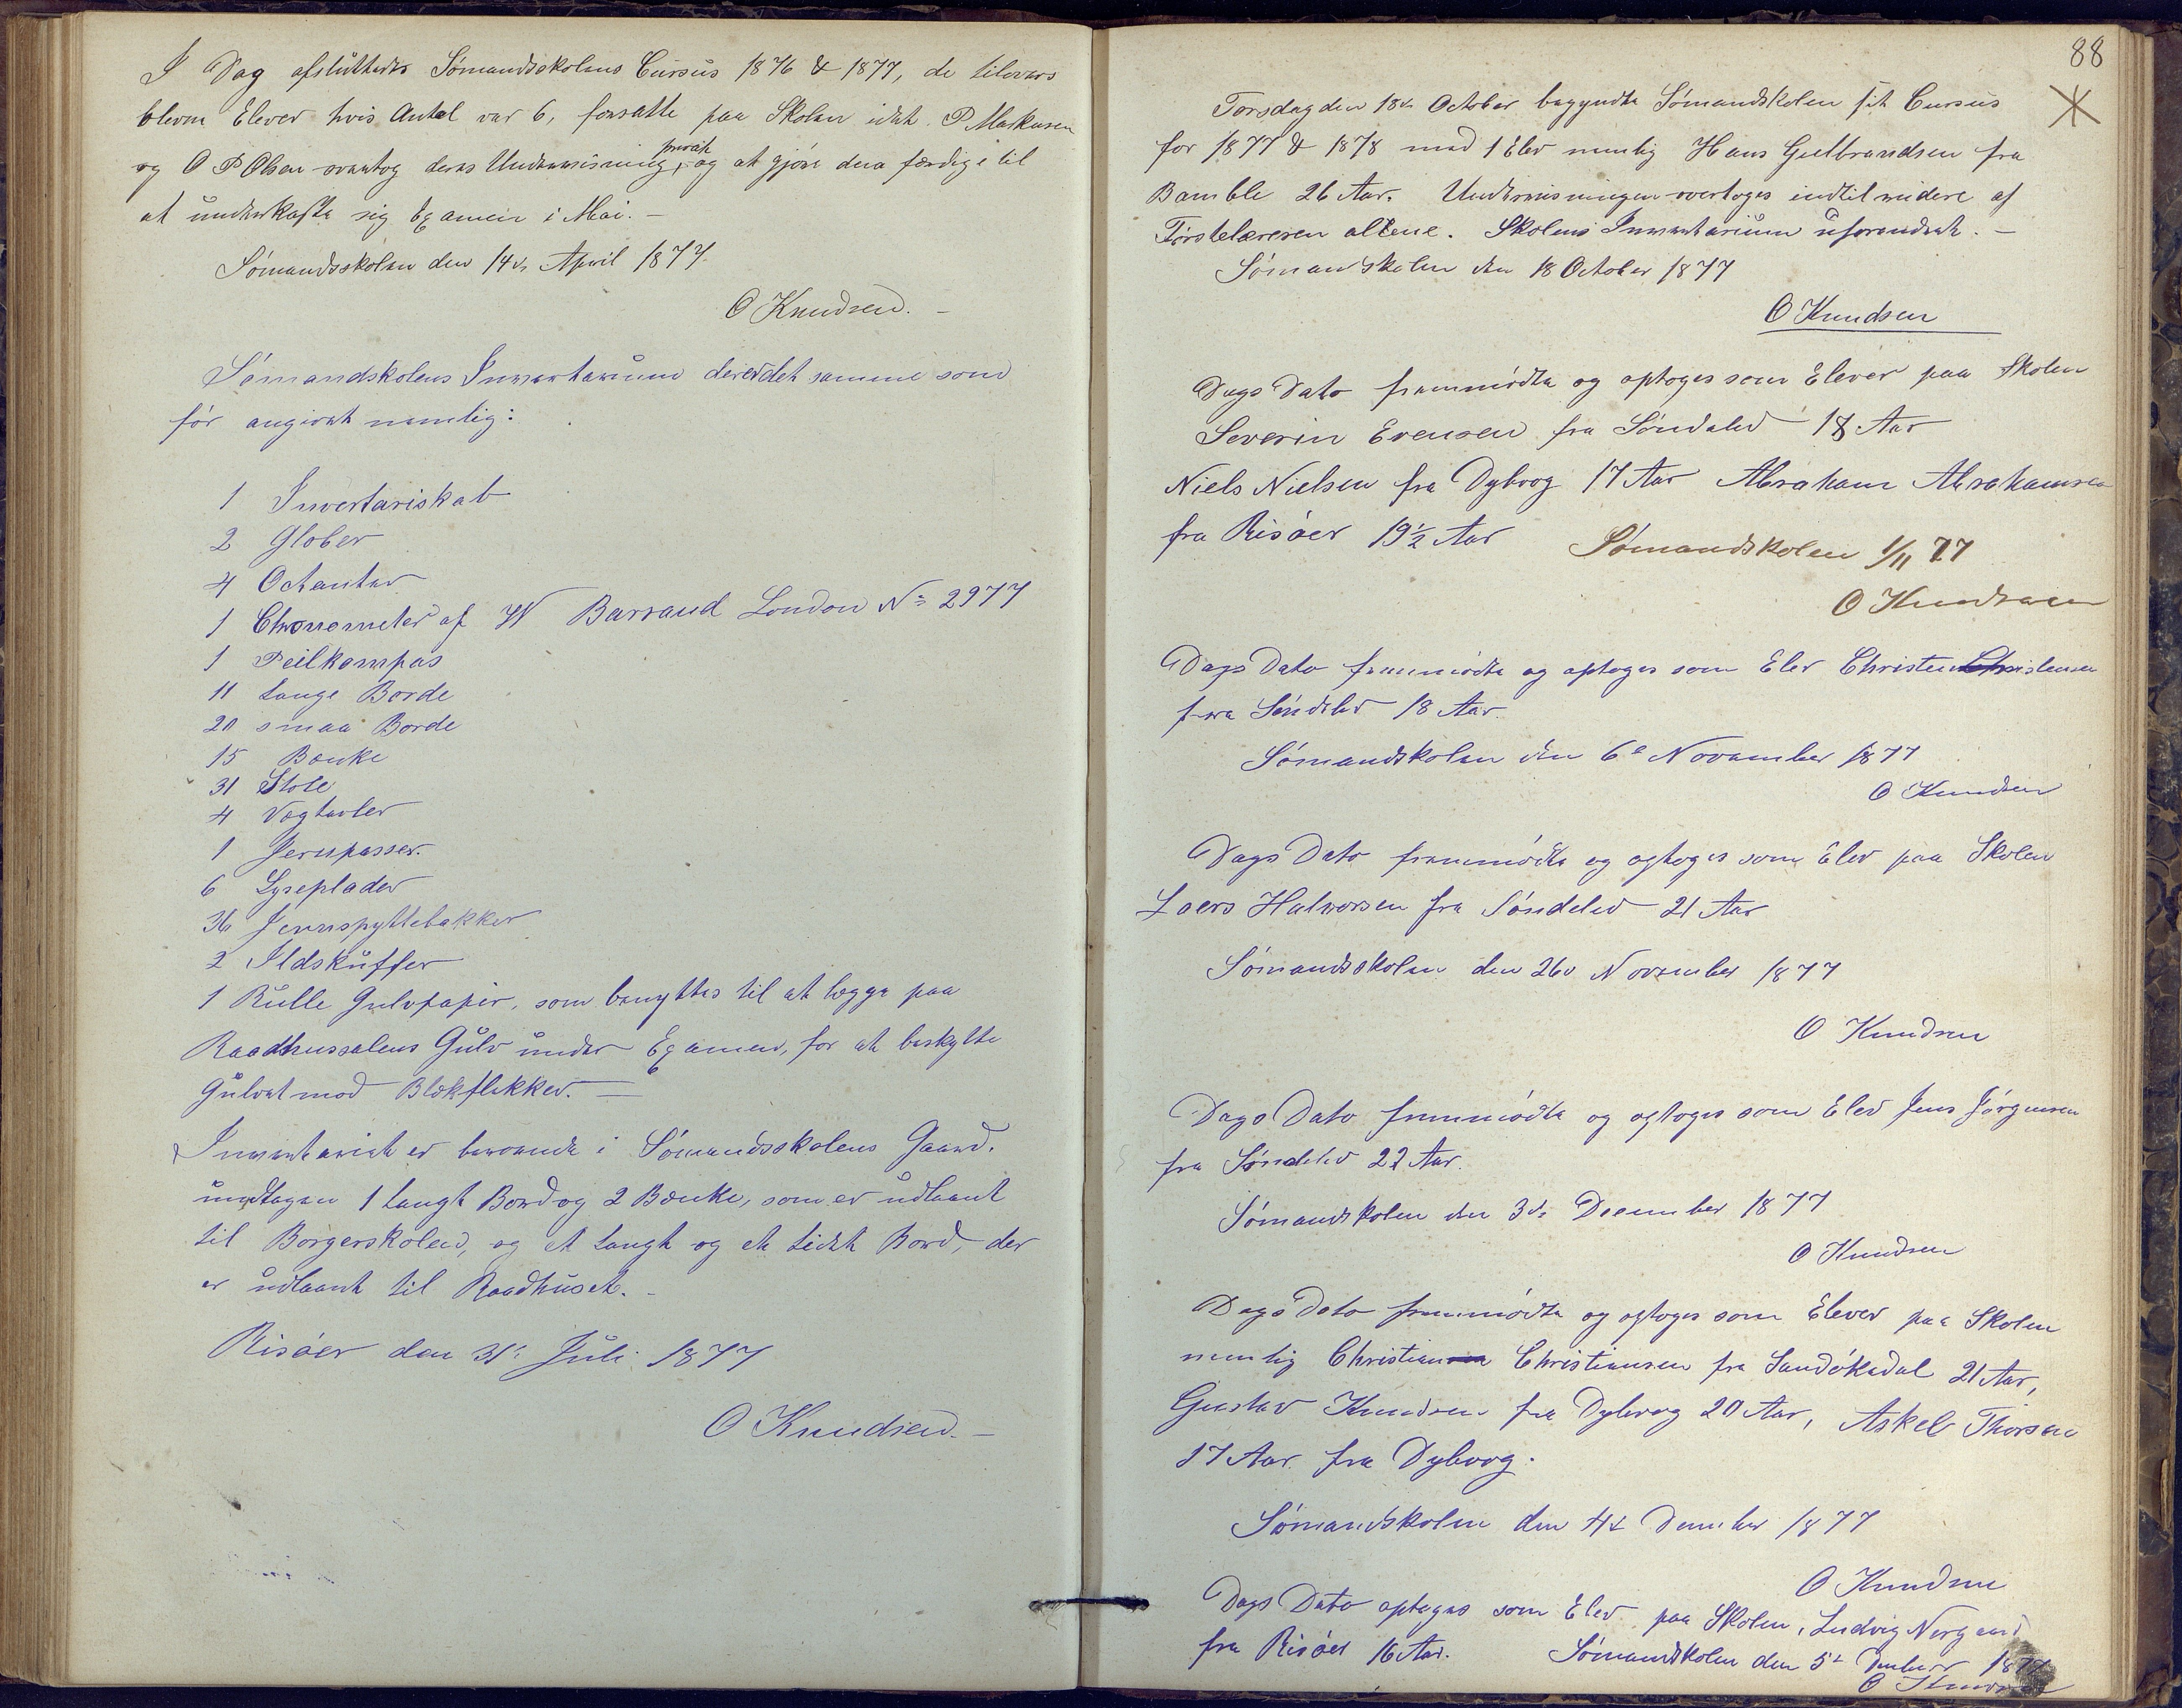 I Dag afsluttedes Sømandsskolens Cursus 1876 & 1877, de tilovers
blevne Elever hvis Antal var 6, forsatte paa Skolen idet P Markusen
og O P Olsen overtog deres Undervisning, privat og at gjøre dem færdige til
at underkaste sig Examen i Mai. –
Sømandsskolen den 14de April 1877.
O Knudsen. –
Sømandskolens Inventarium der er det samme som
før angivet nemlig:
1 Inventariskab
2 Glober
4 Octanter
1 Chronometer af W Barraud London No 2977
1 Peilkompas
11 lange Borde
20 smaa Borde
15 Bænke
31 Stole
4 Vægtavler
1 Jernpasser.
6 Lyseplader
36 Jernspyttebakker
2 Ildskuffer
1 Rulle Gulvpapir, som benyttes til at lægge paa
Raadhussalens Gulv under Examen, for at beskytte
Gulvet mod Blækflekker. –
Inventariet er beroende i Sømandsskolens Gaard.
undtagen 1 langt Bord og 2 Bænke, som er udlaant
til Borgerskolen, og et langt og et lidet Bord, der
er udlaant til Raadhuset. –
Risøer den 31te Juli 1877
O Knudsen. –
88
Torsdag den 18de October begyndte Sømandskolen sit Cursus
for 1877 & 1878 med 1 Elev nemlig Hans Gulbrandsen fra
Bamble 26 Aar. Undervisningen overtoges indtil videre af
Førstelæreren allene. Skolens Inventarium uforandret. –
Sømandskolen den 18 October 1877
O Knudsen
Dags Dato fremmødte og optoges som Elever paa Skolen
Severin Evensen fra Søndeled 18 Aar
Niels Nielsen fra Dybvog 17 Aar Abraham Abrahamsen
fra Risøer 19½ Aar Sømandskolen 1/11 77
O Knudsen
Dags Dato fremmødte og optoges som Elev Christen Christensen
fra Søndeled 18 Aar.
Sømandskolen den 6te November 1877
O Knudsen
Dags Dato fremmødte og optoges som Elev paa Skolen
Laers Halvorsen fra Søndeled 21 Aar
Sømandsskolen den 26de November 1877
O Knudsen
Dags Dato fremmødte og optoges som Elev Jens Jørgensen
fra Søndeled 22 Aar.
Sømandskolen den 3de December 1877
O Knudsen
Dags Dato fremmødte og optoges som Elever paa Skolen
nemlig Christian Christiansen fra Sandøkedal 21 Aar,
Gustav Knudsen fra Dybvog 20 Aar, Askel Thorsen
17 Aar fra Dybvog.
Sømandskolen den 4de December 1877
O Knudsen
Dags Dato optoges som Elev paa Skolen, Ludvig Nergaard
fra Risøer 16 Aar. Sømandskolen den 5te December 1877
O Knudsen